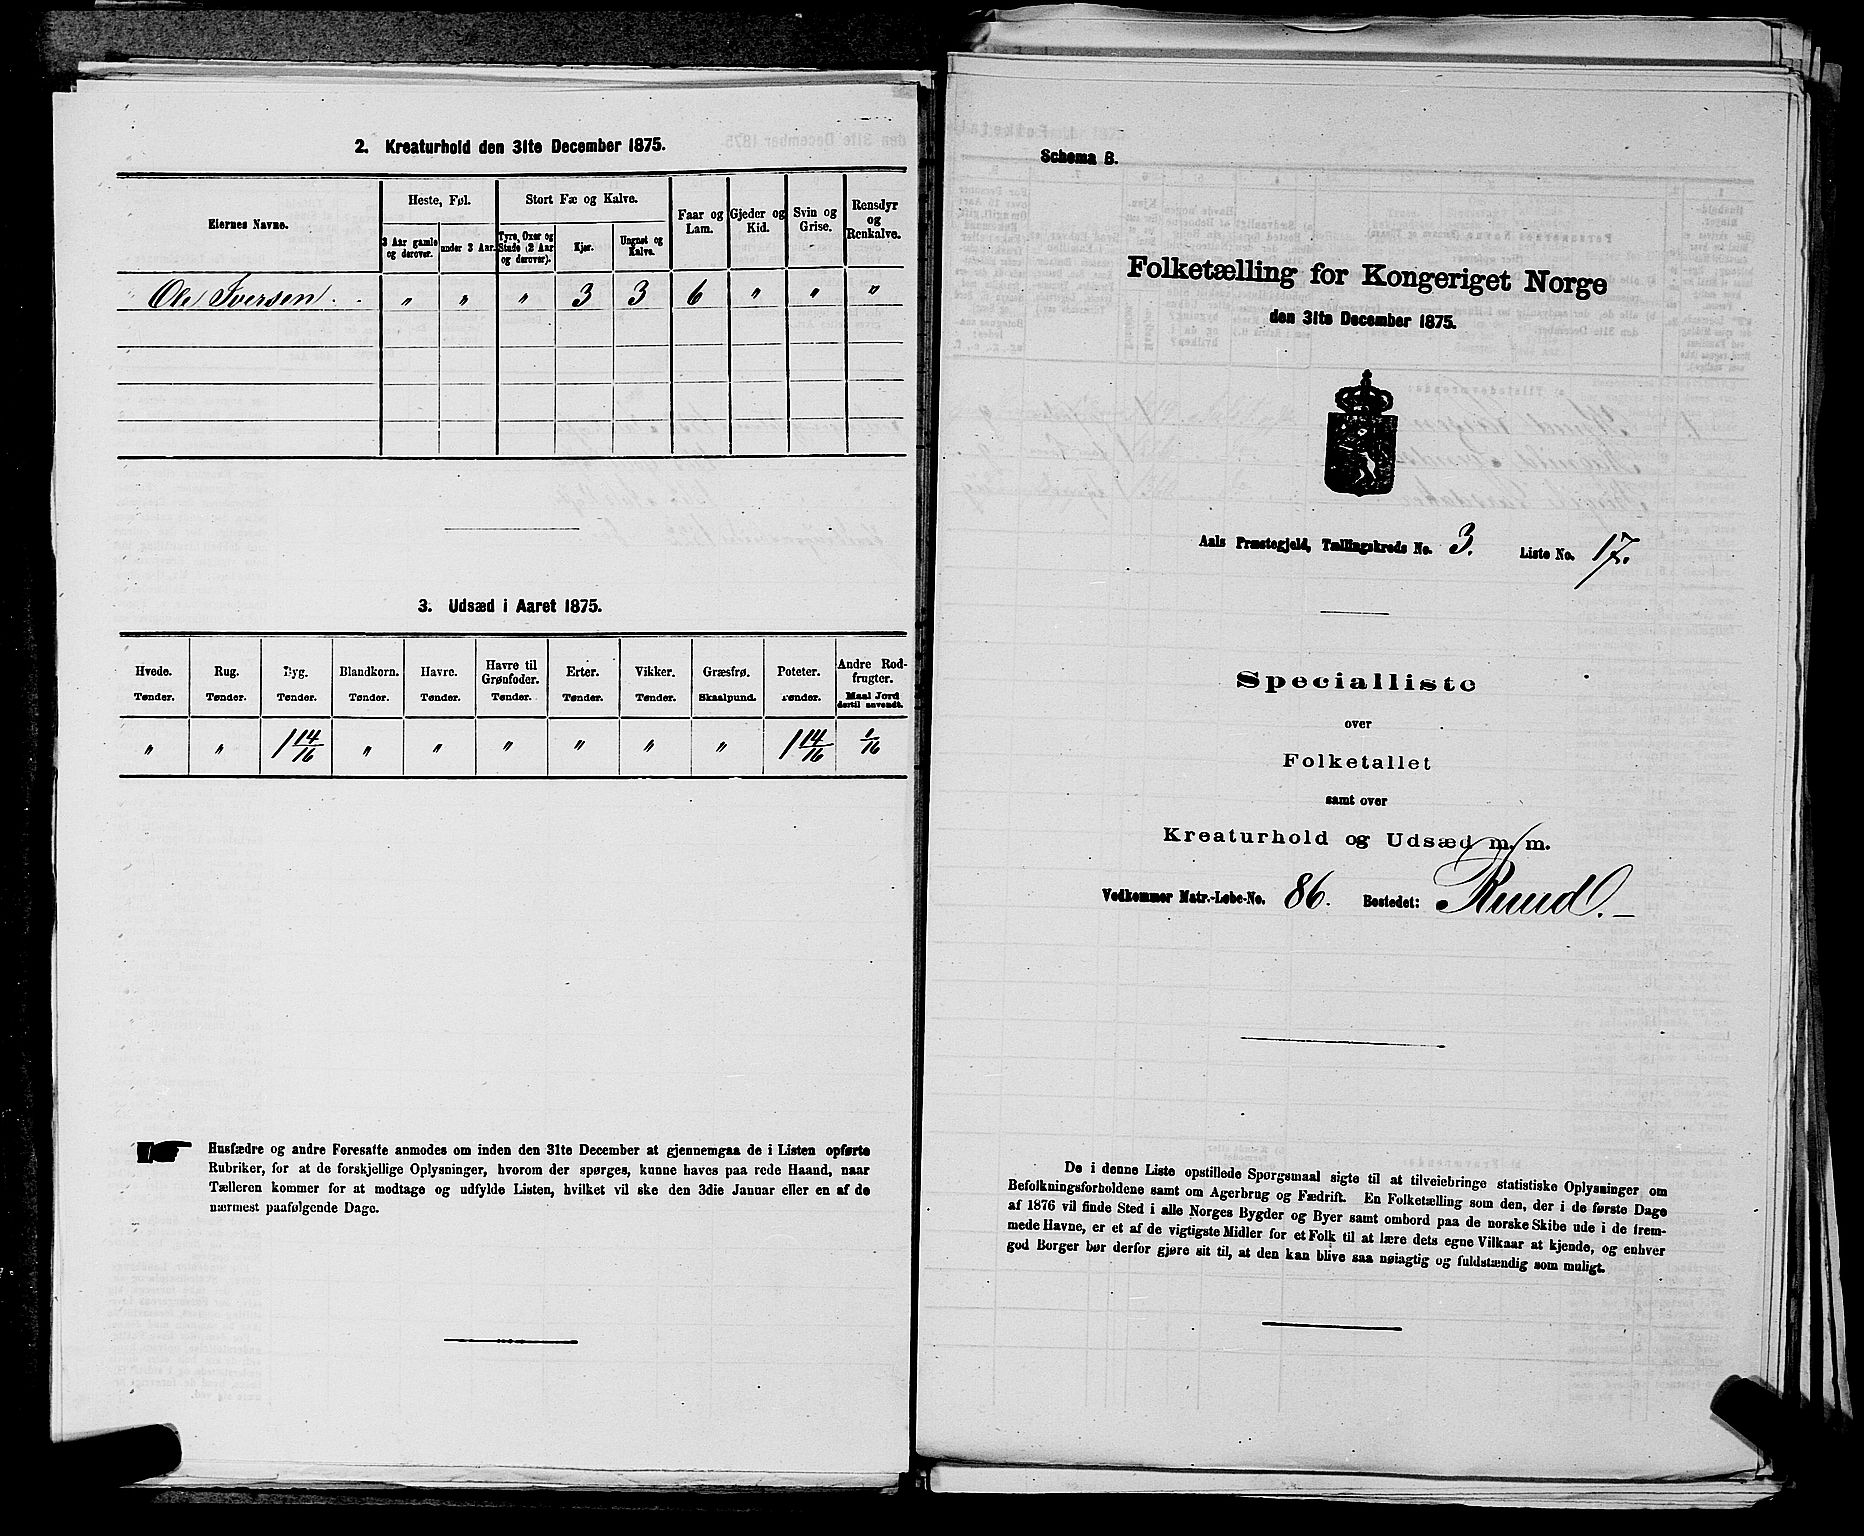 2. Kreaturhold den 31te December 1875.
Eiernes Navne.
Heste, Føl.
Stort Fæ og Kalve.
Faar og Lam.
Gjeder og Kid.
Svin og Grise.
Rensdyr og Renkalve.
3 Aar gamle og derover.
under 3 Aar.
Tyre, Oxer og Stude (2 Aar og derover).
Kjør.
Ungnøt og Kalve.
Ole Iversen. . " " " 3 3 6 " " "
3. Udsæd i Aaret 1875.
Hvede. Rug. Byg. Blandkorn. Havre. Havre til Grønfoder. Erter. Vikker. Græsfrø. Poteter. Andre Rodfrugter.
Tønder. Tønder. Tønder. Tønder. Tønder. Tønder. Tønder. Tønder. Skaalpund. Tønder. Maal Jord dertil anvendt.
" " 1 14/16 " " " " " " 1 14/16 1/16
Husfædre og andre Foresatte anmodes om inden den 31te December at gjennemgaa de i Listen opførte
Rubriker, for at de forskjellige Oplysninger, hvorom der spørges, kunne haves paa rede Haand, naar
Tælleren kommer for at modtage og udfylde Listen, hvilket vil ske den 3die Januar eller en af de
nærmest paafølgende Dage.
Schema B.
Folketælling for Kongeriget Norge
den 31te December 1875.
Aals Præstegjeld, Tællingskreds No. 3. Liste No. 17.
Specialliste
over
Folketallet
samt over
Kreaturhold og Udsæd m. m.
Vedkommer Matr.-Løbe-No. 86. Bostedet: Ruud.
De i denne Liste opstillede Spørgsmaal sigte til at tilveiebringe statistiske Oplysninger om
Befolkningsforholdene samt om Agerbrug og Fædrift. En Folketælling som den, der i de første Dage
af 1876 vil finde Sted i alle Norges Bygder og Byer samt ombord paa de norske Skibe ude i de frem-
mede Havne, er et af de vigtigste Midler for et Folk til at lære dets egne Vilkaar at kjende, og enhver
god Borger bør derfor gjøre sit til, at den kan blive saa nøiagtig og fuldstændig som muligt.